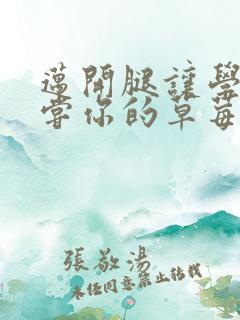 邁開腿讓學
嘗你的草莓
張敬湯
未任同意禁止转载